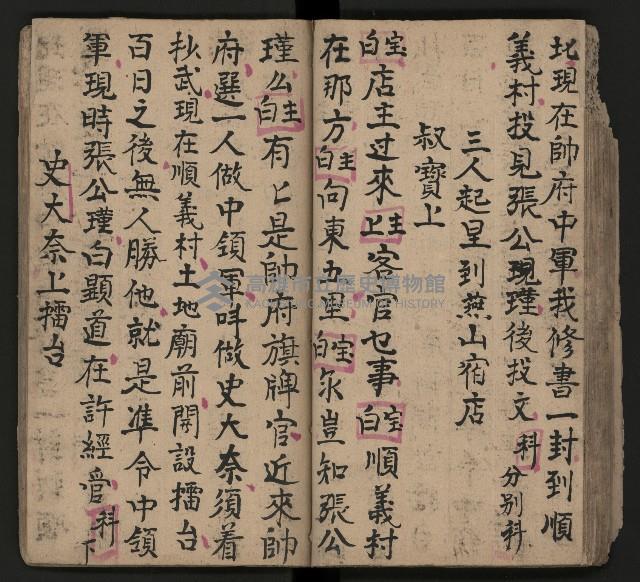 北現在帥府中軍我修書一封到順
義村投見張公現瑾後投文科分别科
三人起呈到燕山宿店
叔寶上
宝白店主过來主上客官乜事宝白順義村
在那方主白向東五里宝白尔豈知張公
瑾么主白有匕是帥府旗牌官近來帥
府選一人做中領軍呌做史大奈須着
抄武現在順義村土地廟前開設擂台
百日之後無人勝他就是准令中領
軍現時張公瑾白顕道在許經管科下
史大奈上擂台
高雄市立歷史博物館
KAOHSIUNG MUSEUM OF HISTORY